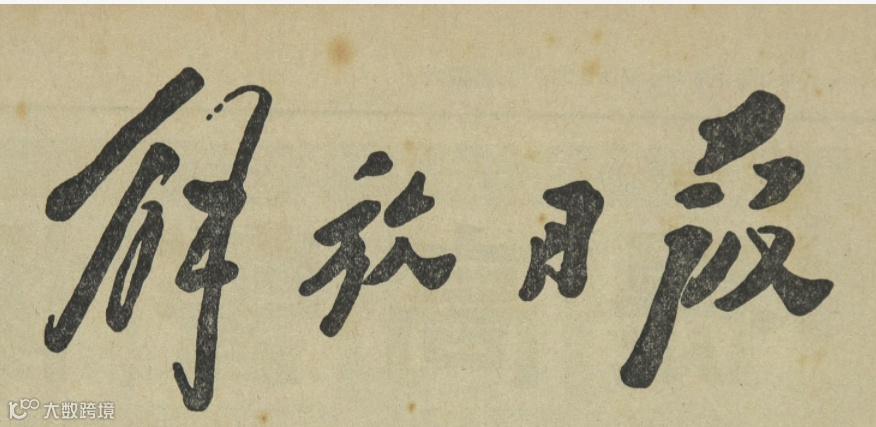 解放日报
大数跨境